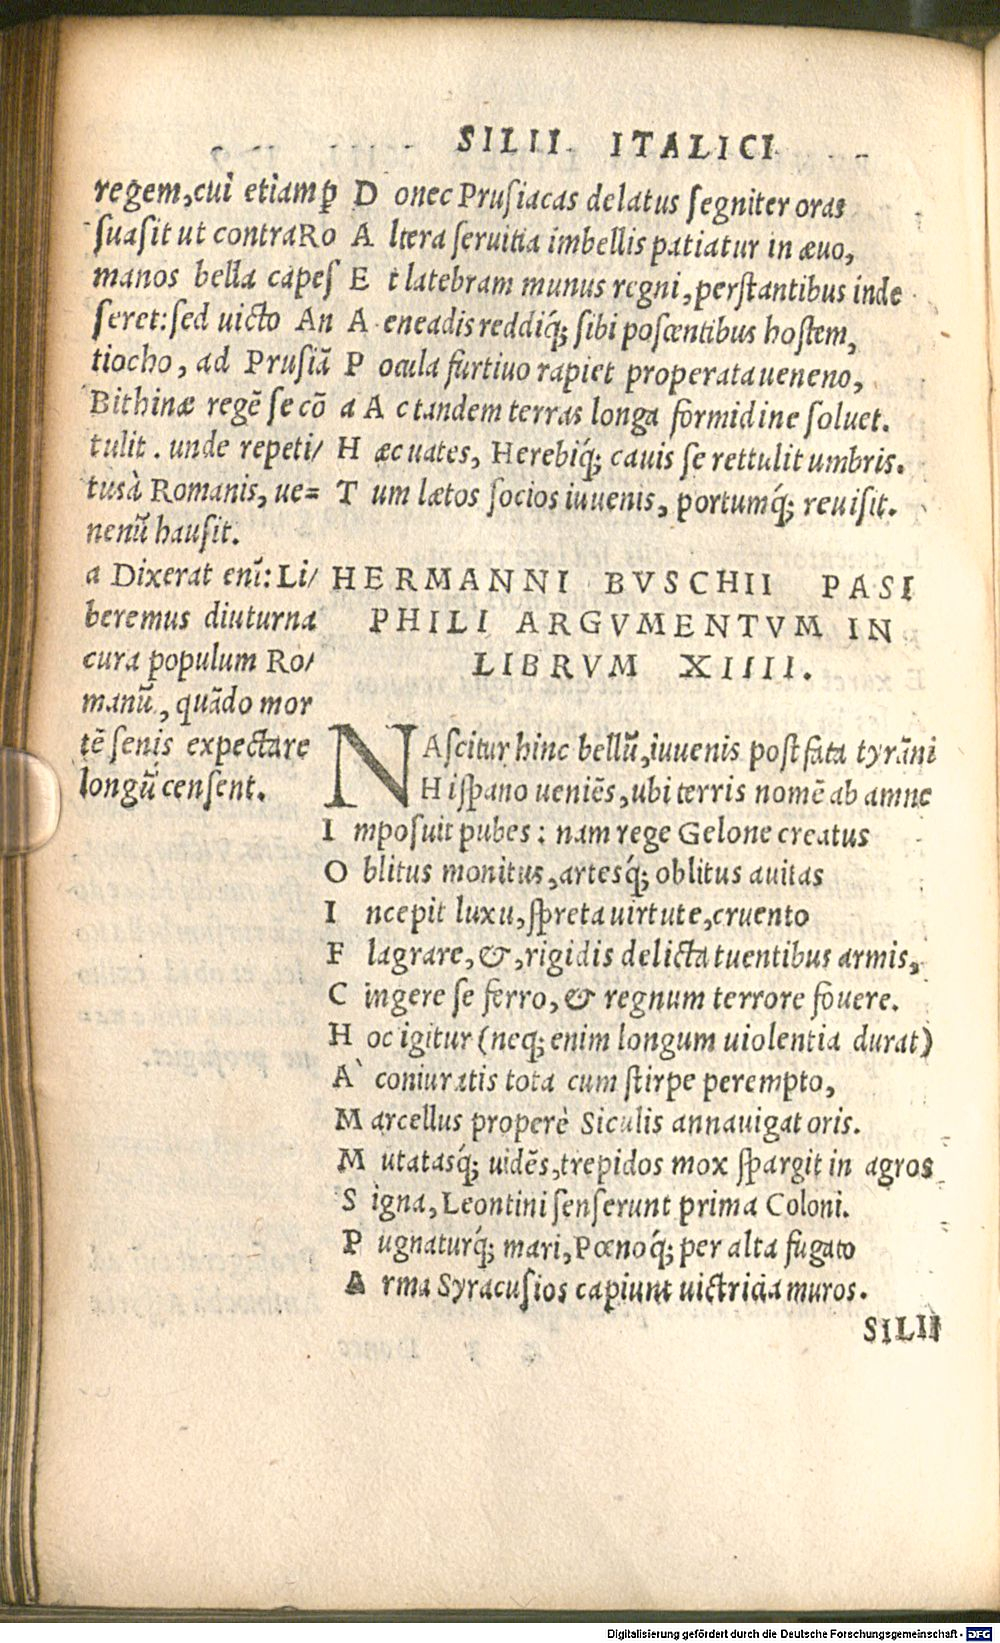 SILII ITALICI
regem,cui etiamꝑ
suasit ut contraRo
manos bella capes
seret:sed uicto An
tiocho, ad Prusiā
Bithinæ regē se cō
tulit. unde repeti/
tusà Romanis, ue=
nenū hausit.
a Dixerat enī: Li/
beremus diuturna
cura populum Ro/
manū, quādo mor
tē senis expectare
longū censent.
D onec Prusiacas delatus segniter oras
A ltera seruitia imbellis patiatur in æuo,
E t latebram munus regni, perstantibus inde
A eneadis reddiq́; sibi poscentibus hostem,
P ocula furtiuo rapiet properata ueneno,
a A c tandem terras longa formidine soluet.
H æc uates, Herebiq́; cauis se rettulit umbris.
T um lætos socios iuuenis, portumq́; reuisit.
HERMANNI BVSCHII PASI
PHILI ARGVMENTVM IN
LIBRVM XIIII.
NAscitur hinc bellū, iuuenis post fata tyrāni
Hispano ueniēs, ubi terris nomē ab amne
I mposuit pubes: nam rege Gelone creatus
O blitus monitus, artesq́; oblitus auitas
I ncepit luxu, spreta uirtute, cruento
F lagrare, &, rigidis delicta tuentibus armis,
C ingere se ferro, & regnum terrore fouere.
H oc igitur (neq; enim longum uiolentia durat)
A` coniuratis tota cum stirpe perempto,
M arcellus properè Siculis annauigat oris.
M utatasq́; uidēs, trepidos mox spargit in agros
S igna, Leontini senserunt prima Coloni.
P ugnaturq́; mari, Pœnoq́; per alta fugato
A rma Syracusios capiunt uictricia muros.
SILII
Digitalisierung gefördert durch die Deutsche Forschungsgemeinschaft - DFG